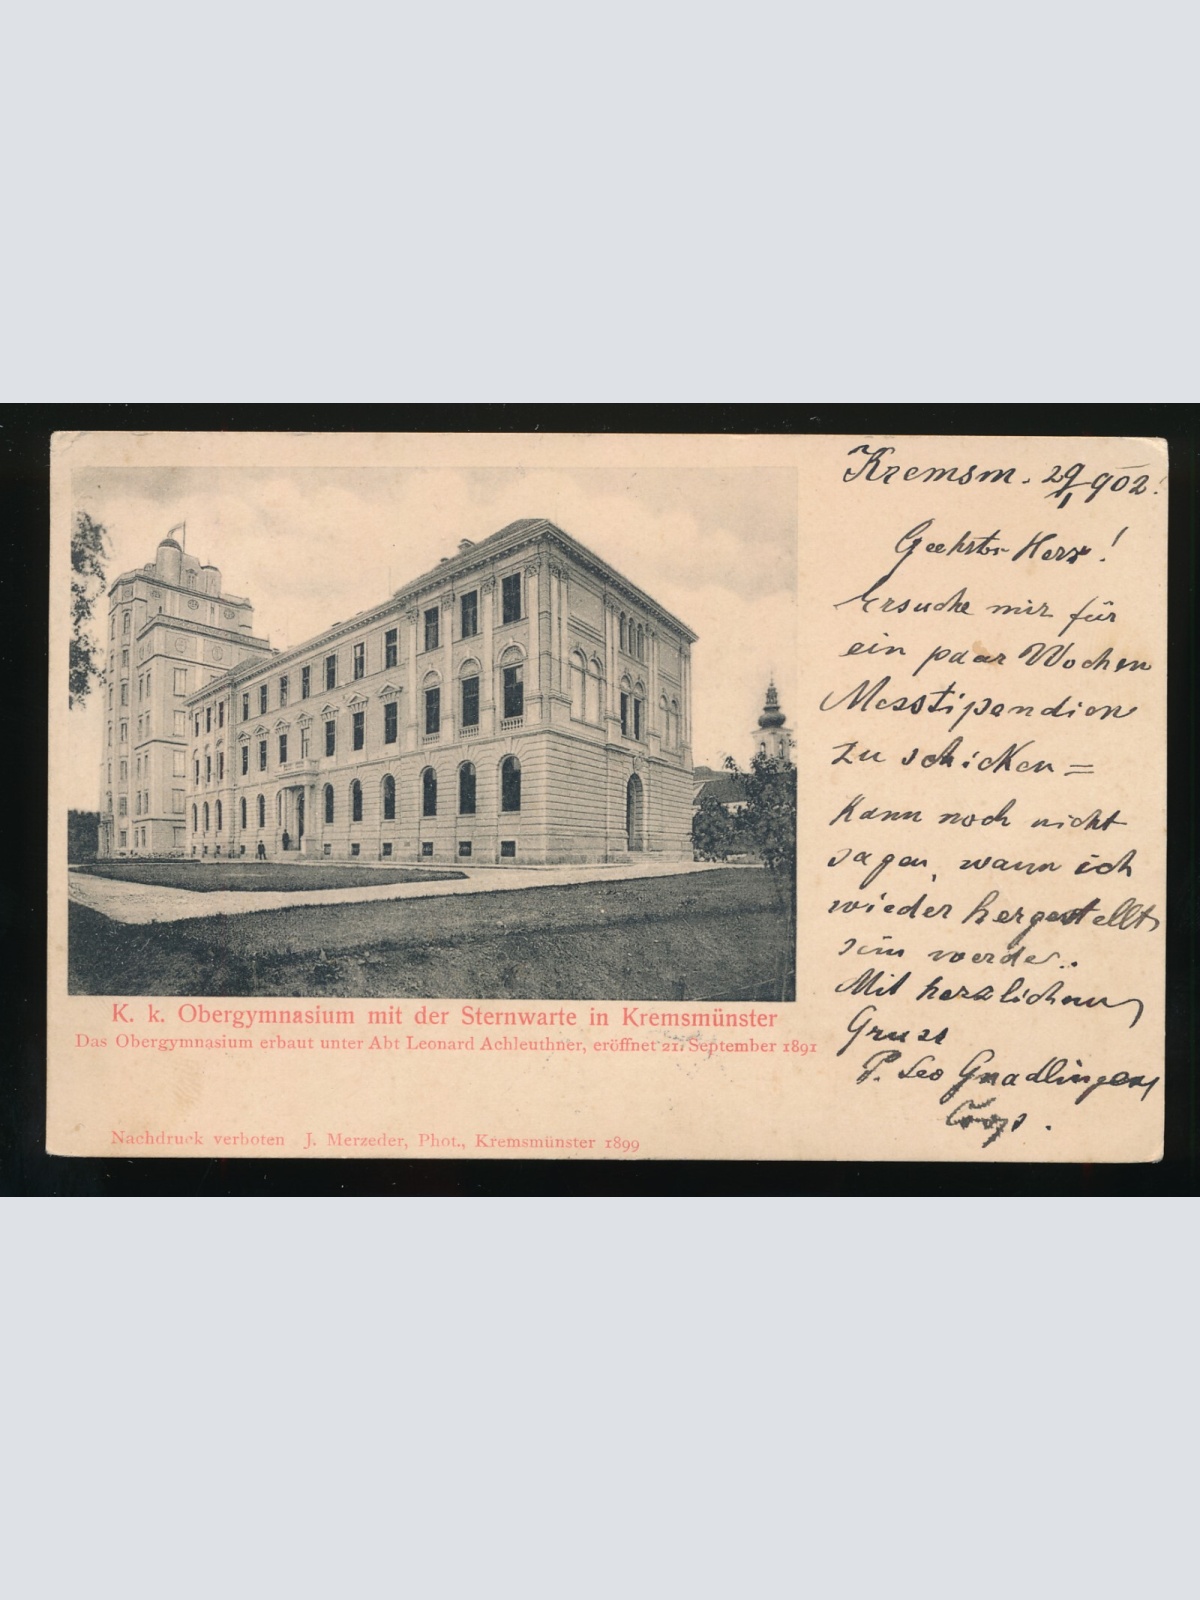 Kremsm. 29/1 902.
Geehrter Herr!
Ersuche mir für
ein paar Wochen
Messtipendien
zu schicken =
Kann noch nicht
sagen, wann ich
wieder hergestellt
sein werde.
Mit herzlichem
Gruss
P. Leo Gnadlinger
K. k. Obergymnasium mit der Sternwarte in Kremsmünster
Das Obergymnasium erbaut unter Abt Leonard Achleuthner, eröffnet 21. September 1891
Nachdruck verboten J. Merzeder, Phot., Kremsmünster 1899